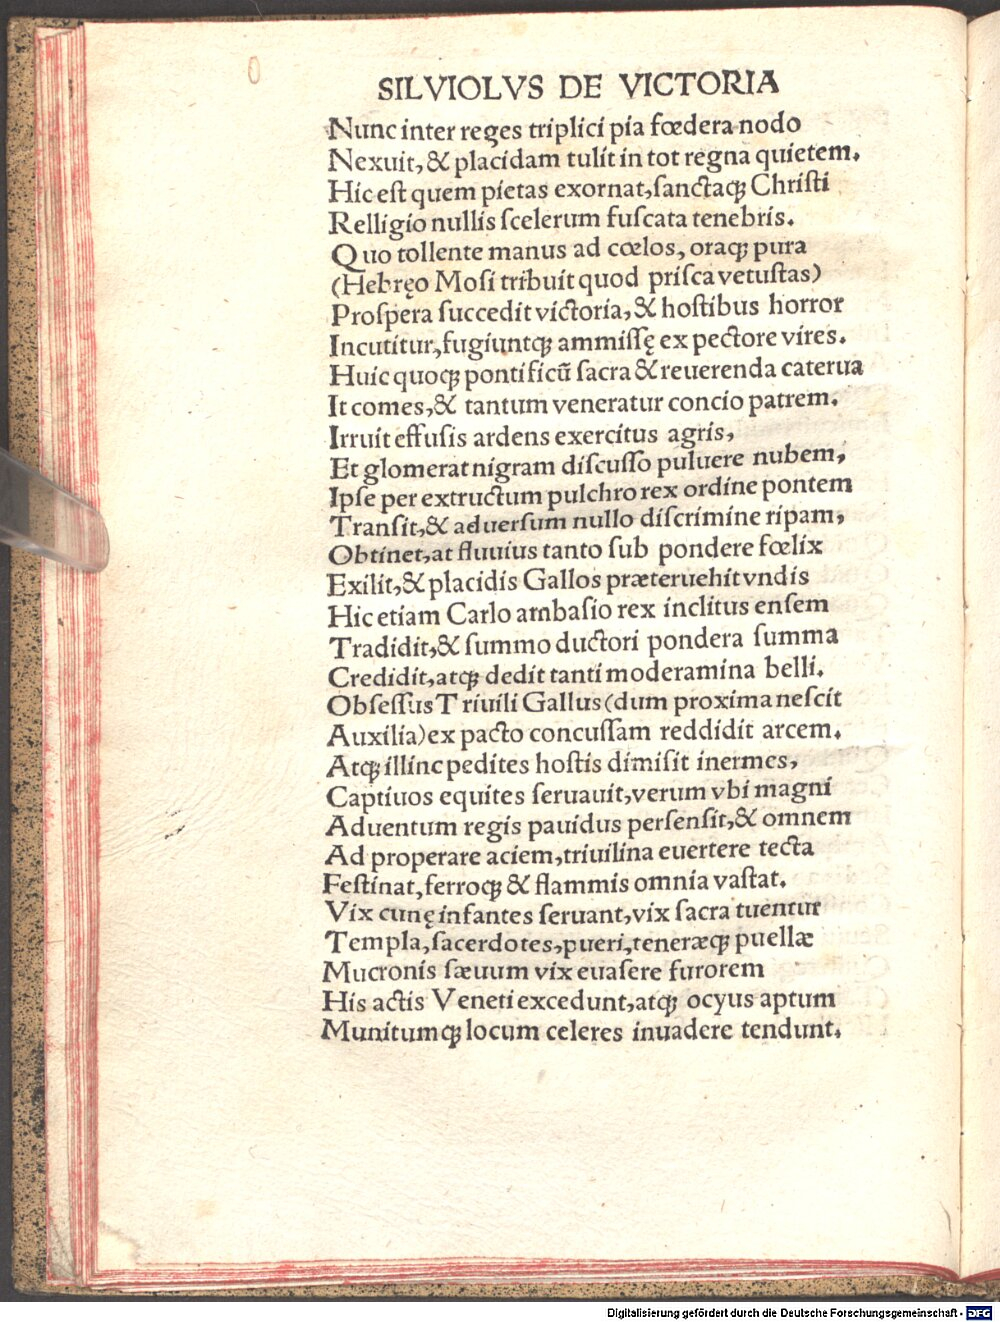 SILVIOLVS DE VICTORIA
Nunc inter reges triplici pia fœdera nodo
Nexuit, & placidam tulit in tot regna quietem.
Hic est quem pietas exornat, ſanctaqꝫ Chriſti
Relligio nullis ſcelerum fuſcata tenebris.
Quo tollente manus ad cœlos, oraqꝫ pura
(Hebręo Moſi tribuit quod priſca vetuſtas)
Proſpera ſuccedit victoria, & hoſtibus horror
Incutitur, fugiuntqꝫ ammiſſę ex pectore vires.
Huic quoqꝫ pontificū ſacra & reuerenda caterua
It comes, & tantum veneratur concio patrem.
Irruit effuſis ardens exercitus agris,
Et glomerat nigram diſcuſſo puluere nubem,
Ipſe per extructum pulchro rex ordine pontem
Tranſit, & aduerſum nullo diſcrimine ripam,
Obtinet, at fluuius tanto ſub pondere fœlix
Exilit, & placidis Gallos præteruehit vndis
Hic etiam Carlo ambaſio rex inclitus enſem
Tradidit, & ſummo ductori pondera ſumma
Credidit, atqꝫ dedit tanti moderamina belli.
Obſeſſus Triuili Gallus (dum proxima neſcit
Auxilia) ex pacto concuſſam reddidit arcem.
Atqꝫ illinc pedites hoſtis dimiſit inermes,
Captiuos equites ſeruauit, verum vbi magni
Aduentum regis pauidus perſenſit, & omnem
Ad properare aciem, triuilina euertere tecta
Feſtinat, ferroqꝫ & flammis omnia vaſtat.
Vix cunę infantes ſeruant, vix ſacra tuentur
Templa, ſacerdotes, pueri, teneræqꝫ puellæ
Mucronis ſæuum vix euaſere furorem
His actis Veneti excedunt, atqꝫ ocyus aptum
Munitumqꝫ locum celeres inuadere tendunt.
Digitalisierung gefördert durch die Deutsche Forschungsgemeinschaft - DFG